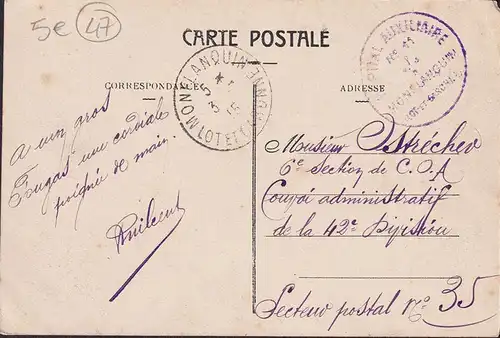 5€ 47
CARTE POSTALE
CORRESPONDANCE
ADRESSE
MONFLANQUIN
5 * 
3 15
LOT ET GARONNE
HOPITAL AUXILIAIRE
No
MONFLANQUIN
LOT-ET-GARONNE
A un gros
une cordiale
poignée de main.
Monsieur
6e Section de C.O.A
administratif
de la 42e Division
Secteur postal No 35